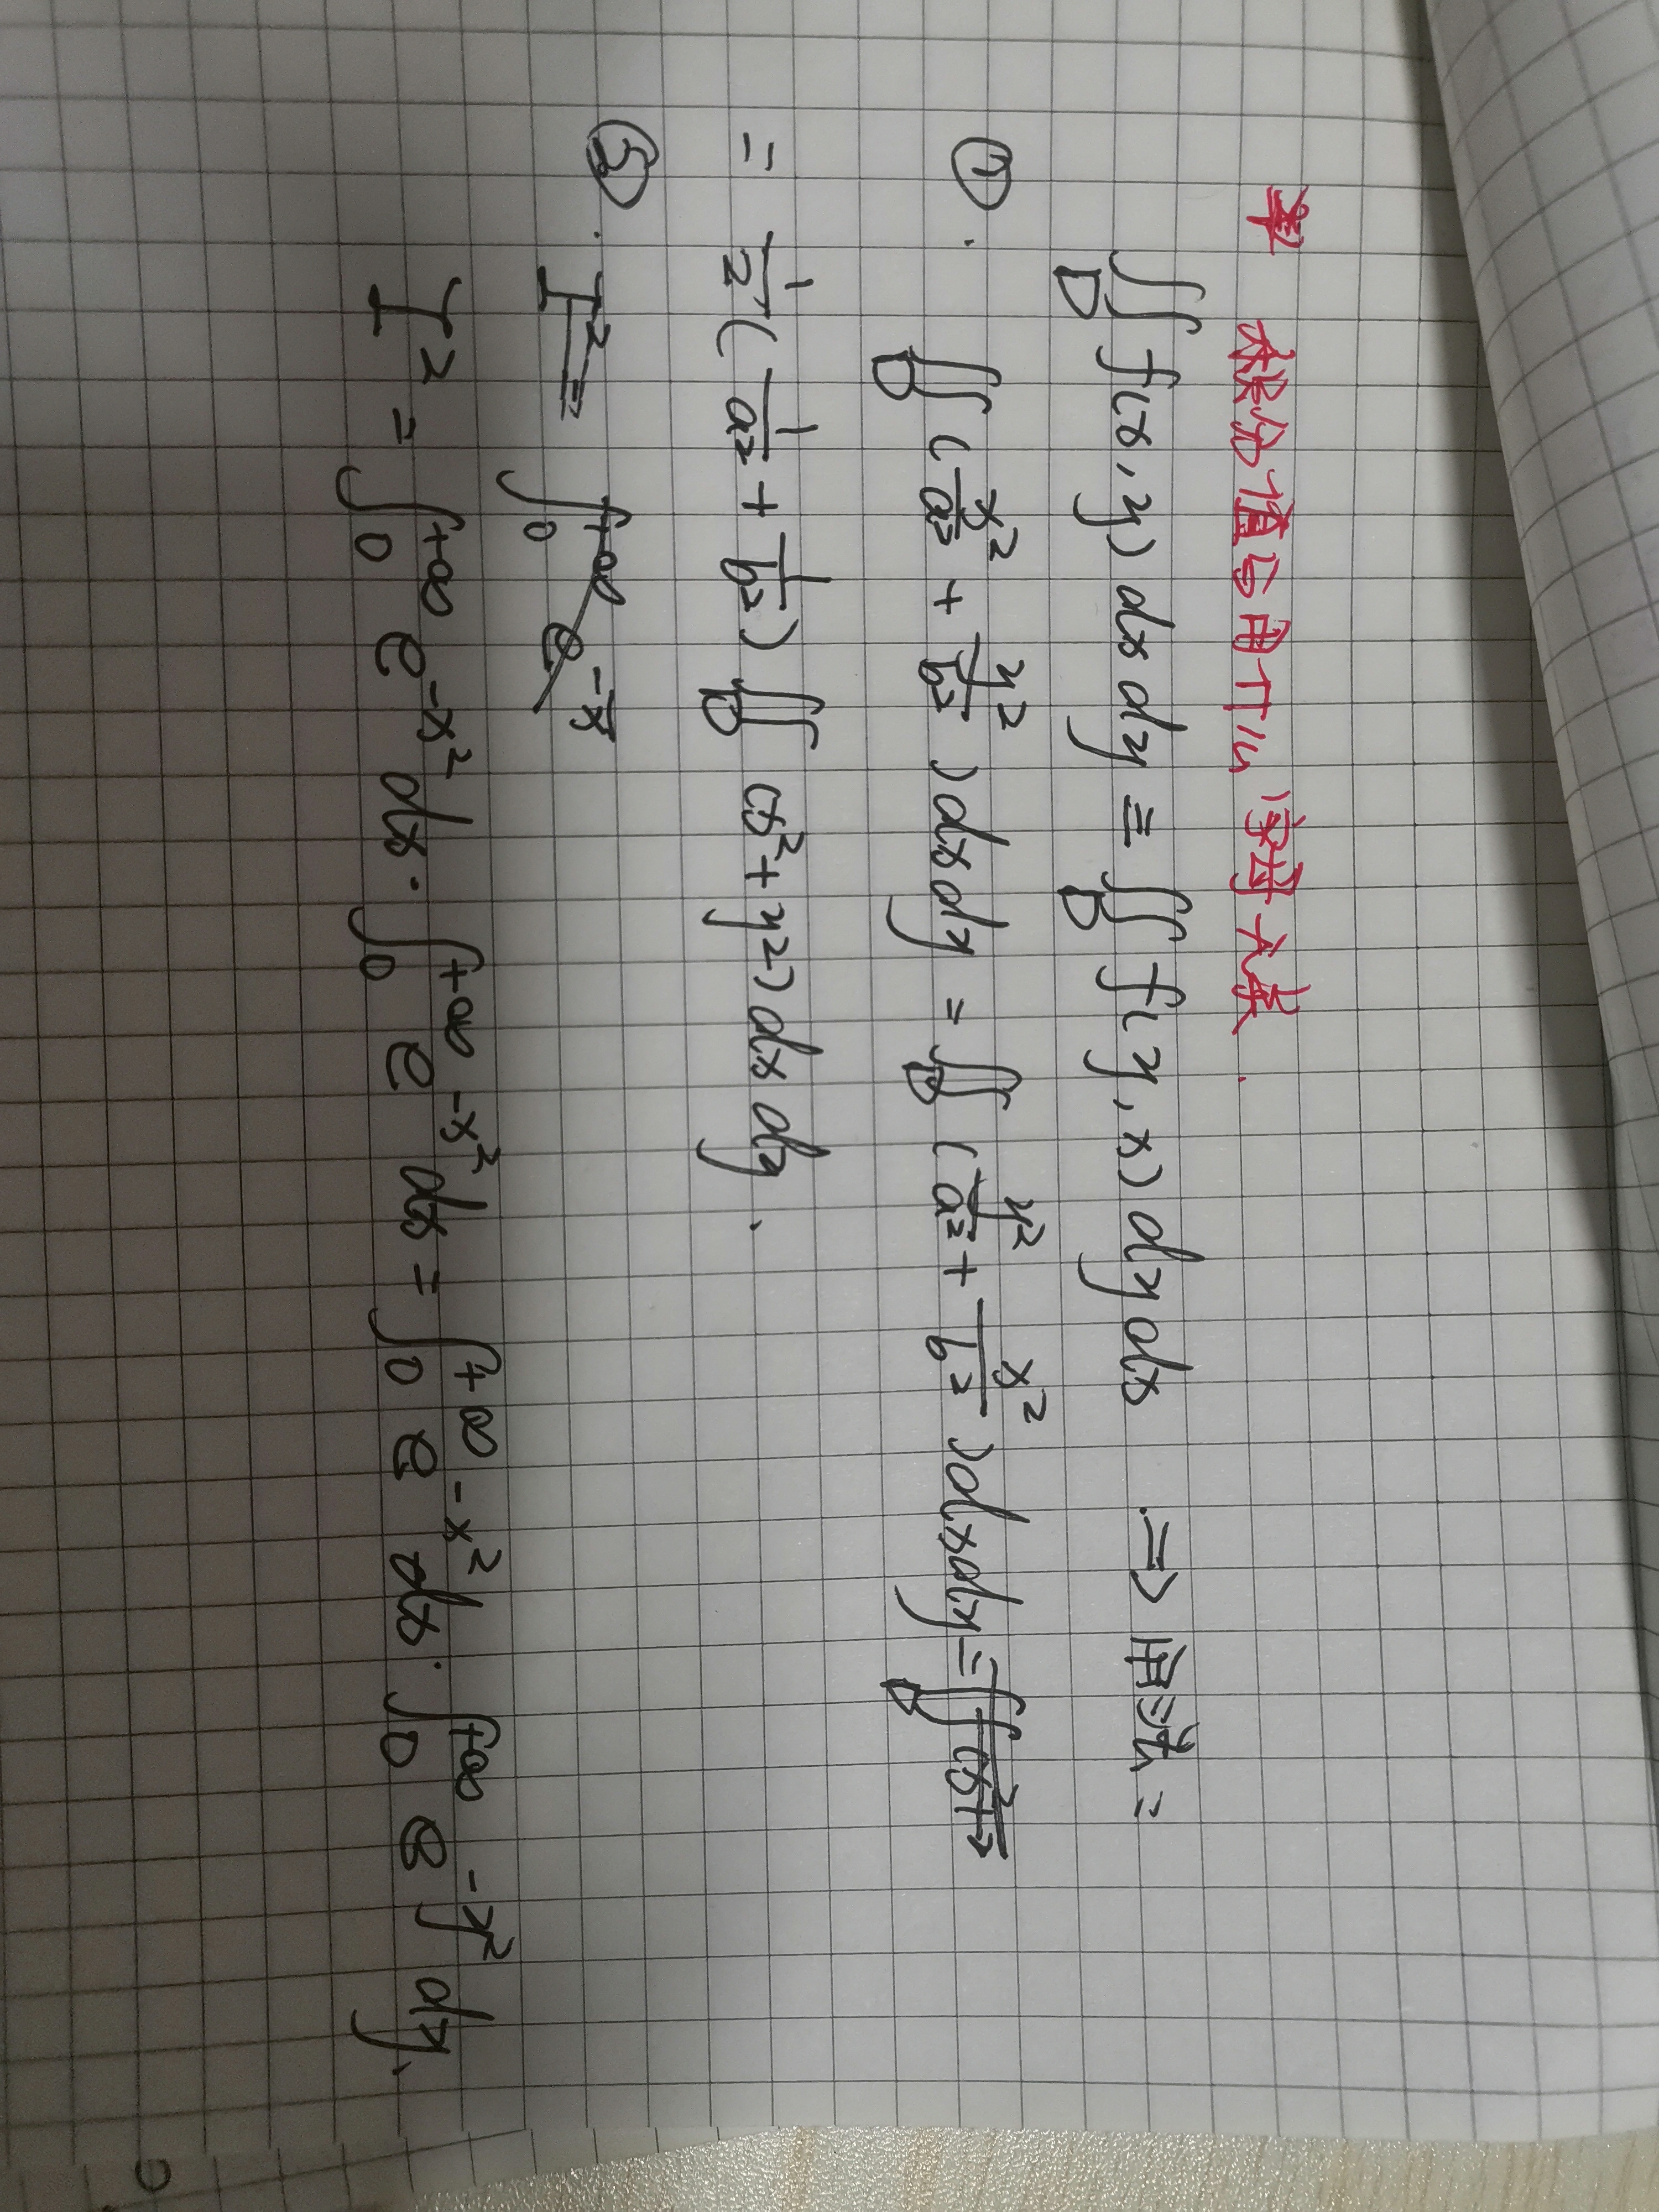 积分值与用什么字母无关.
∬_D f(x,y) dx dy = ∬_D f(y,x) dy dx ⇒ 用法:
①. ∬_D (x²/a² + y²/b²) dx dy = ∬_D (y²/a² + x²/b²) dx dy =
= 1/2 (1/a² + 1/b²) ∬_D (x²+y²) dx dy.
②. I² = ∫_0^{+∞} e^{-x}
I² = ∫_0^{+∞} e^{-x²} dx · ∫_0^{+∞} e^{-x²} dx = ∫_0^{+∞} e^{-x²} dx · ∫_0^{+∞} e^{-y²} dy.